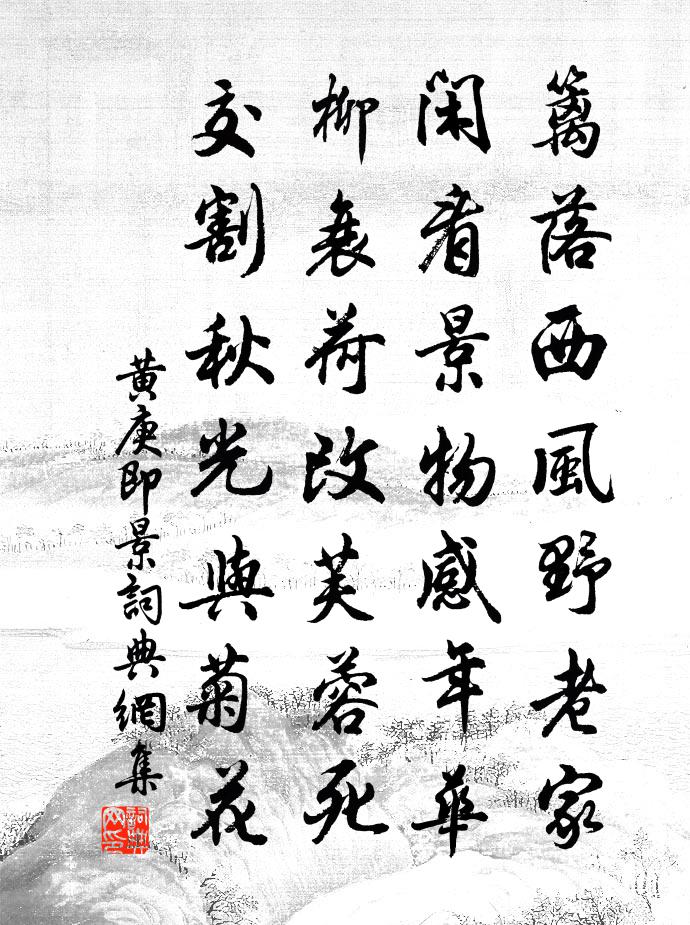 籬落西風野老家
閑看景物感年華
柳衰荷改芙蓉死
交割秋光與菊花
黄庚即景詞典網集
詞典網印